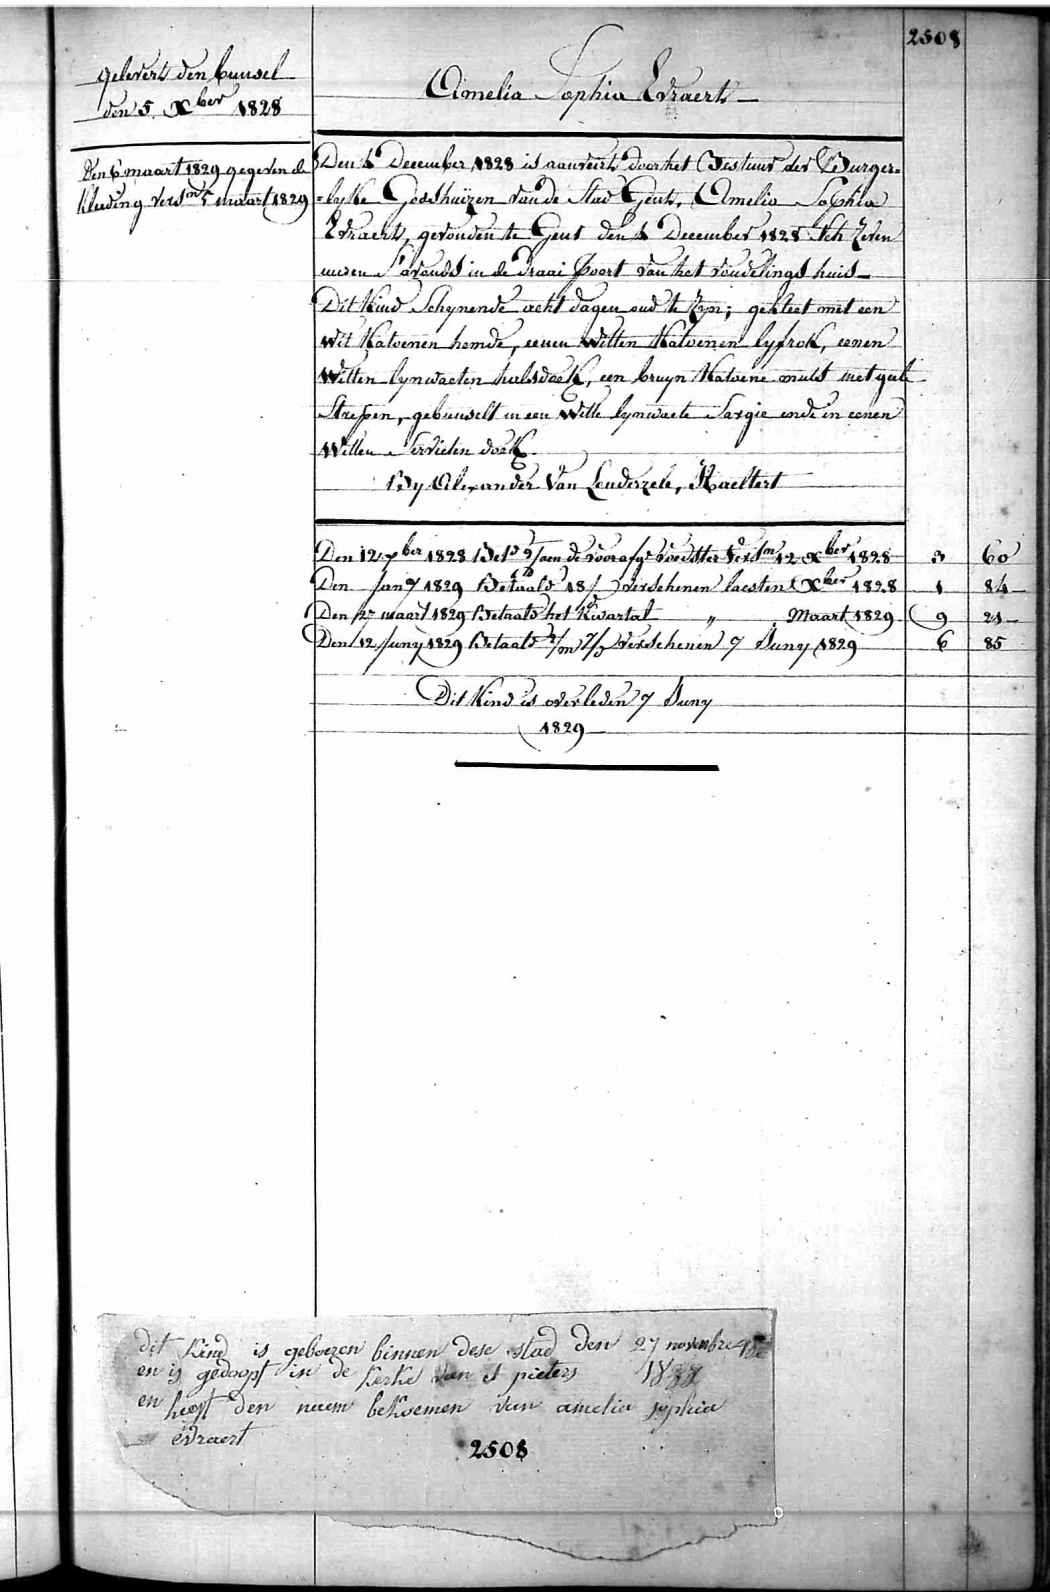 2508
gelevert den bunsel
den 5 Xber 1828
Amelia Sophia Evraert
Den 6 maart 1829 gegeven de
kleeding versn 5 maart 1829
Den 4 December 1828 is aanveirt door het Bestuur der Burger=
=lyke Godshuizen van de Stad Gent, Amelia Sophia
Evraert, gevonden te Gent den 4 December 1828 ten zeven
uuren s'avonds in de Draai Poort van het vondelings huis
Dit Kind Schynende acht dagen oud te zyn; gekleet met een
wit Katoenen hemde, eenen witten Katoenen lyfrok, eenen
witten lynwaeten halsdoek, een bruyn Katoene muts met geele
Strepen, gebunselt in een witte lynwaete Sargie ende in eenen
witten Servieten doek
By Alexander Van Lenderzele, Haeltert
Den 12 Xber 1828 Betd aen de voorafge voedster versn 12 Xber 1828 3 60
Den Jany 1829 Betaald 18/ verschenen laesten Xber 1828 1 84
Den 27 maart 1829 Betaald het Kwartal " Maart 1829 9 21
Den 12 Juny 1829 Betaald 2/m 7/ verschenen 7 Juny 1829 6 85
Dit Kind is overleden 7 Juny
1829
dit kind is geboren binnen dese stad den 27 novenbre
en is gedoopt in de kerke van st pieters 1828
en heeft den naem bekoemen van amelia sophia
evraert
2508